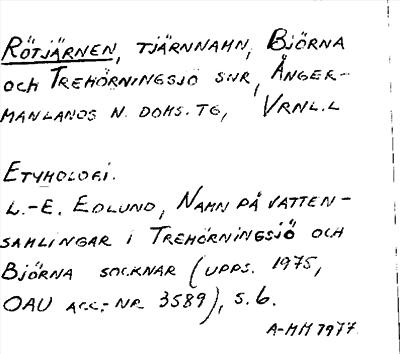 RÖTJÄRNEN, TJÄRNNAMN, BJÖRNA
OCH TREHÖRNINGSJÖ SNR, ÅNGER-
MANLANDS N. DOMS. TG, VRNL.L
ETYMOLOGI.
L.-E. EDLUND, NAMN PÅ VATTEN-
SAMLINGAR I TREHÖRNINGSJÖ OCH
BJÖRNA SOCKNAR (UPPS. 1975,
OAU ACC.-NR 3589), S. 6.
A-MM 1977